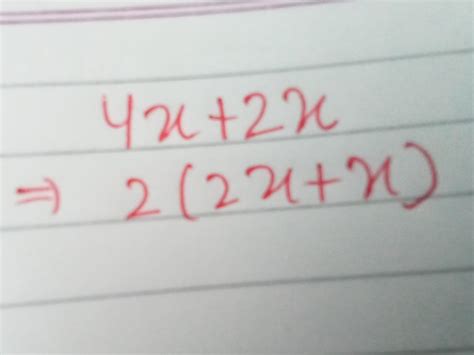 4x+2x
⇒ 2(2x+x)